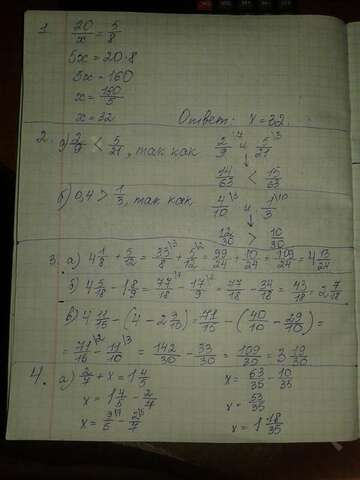 1 20/x = 5/8
5x = 20·8
5x = 160
x = 160/5
x = 32 Ответ: x = 32
2. а) 2/9 < 5/21, так как 2/9 и 5/21
14/63 < 15/63
б) 0,4 > 1/3, так как 4/10 и 1/3
12/30 > 10/30
3. а) 4 1/8 + 5/12 = 33/8 + 5/12 = 99/24 + 10/24 = 109/24 = 4 13/24
б) 4 5/18 - 1 8/9 = 77/18 - 17/9 = 77/18 - 34/18 = 43/18 = 2 7/18
в) 4 11/15 - (4 - 2 9/10) = 71/15 - (40/10 - 29/10) =
= 71/15 - 11/10 = 142/30 - 33/30 = 109/30 = 3 19/30
4. а) 2/7 + x = 1 4/5 x = 63/35 - 10/35
x = 1 4/5 - 2/7 x = 53/35
x = 9/5 - 2/7 x = 1 18/35